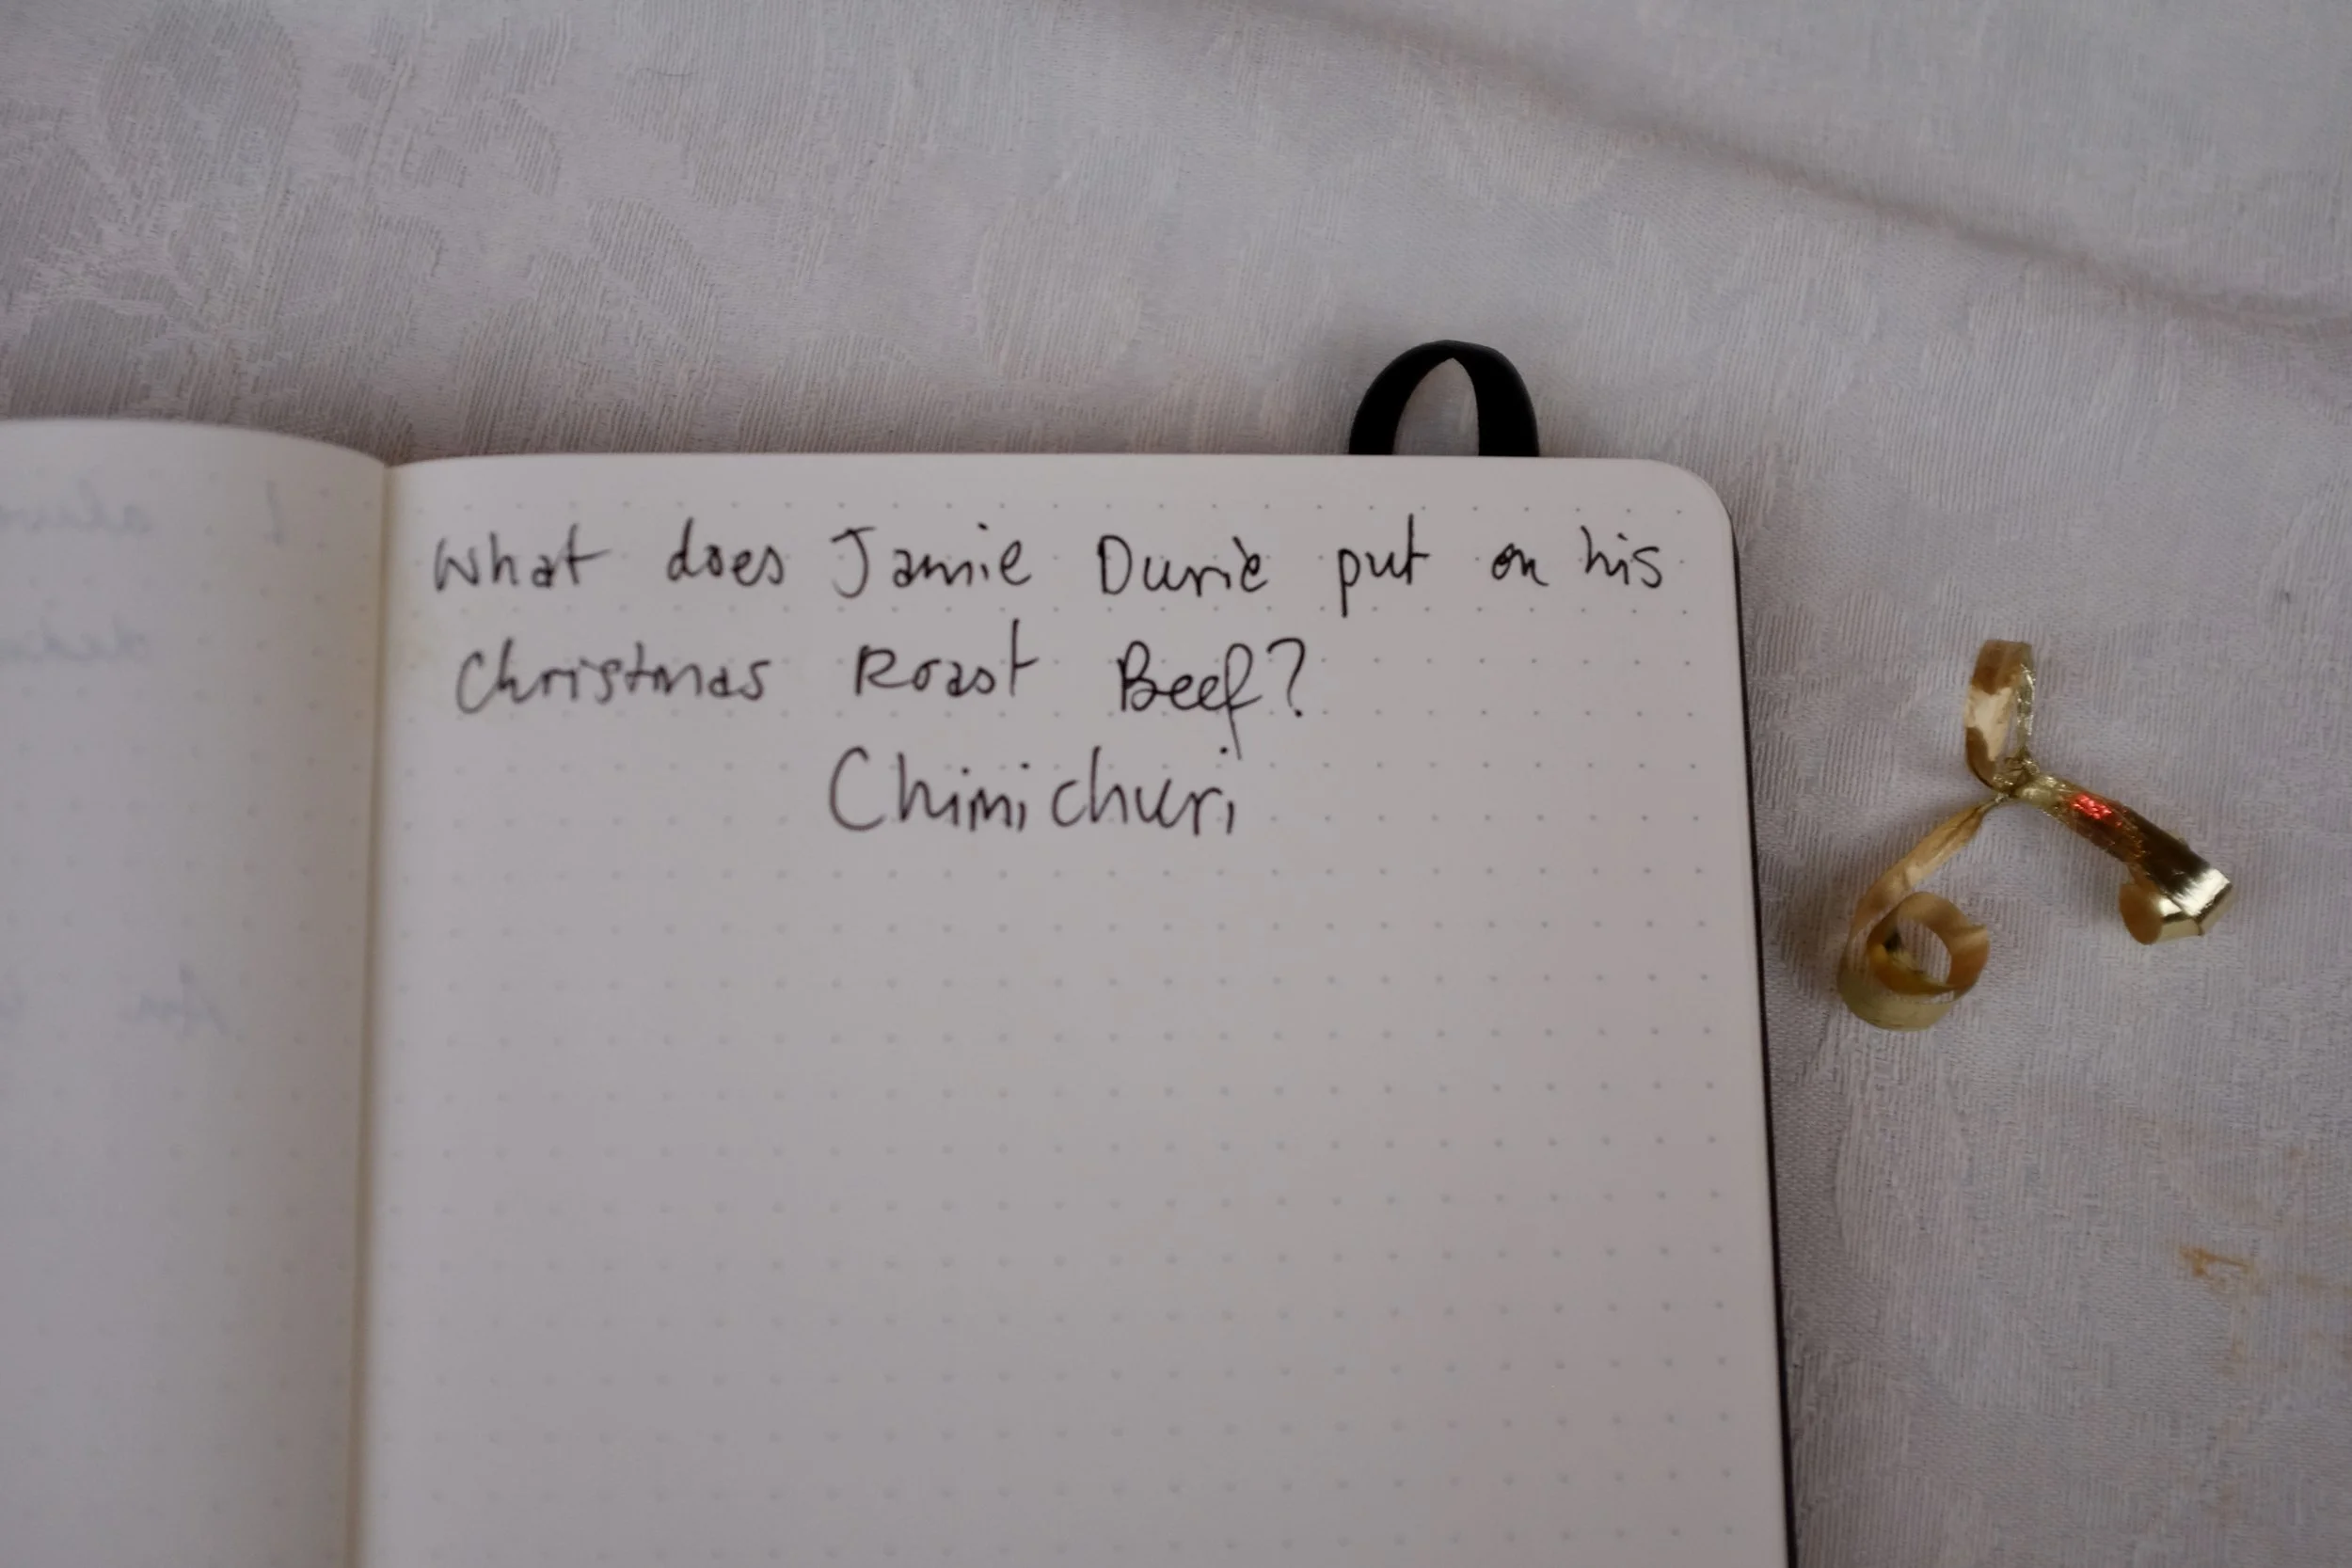 What does Jamie Durie put on his
Christmas Roast Beef?
Chimichuri